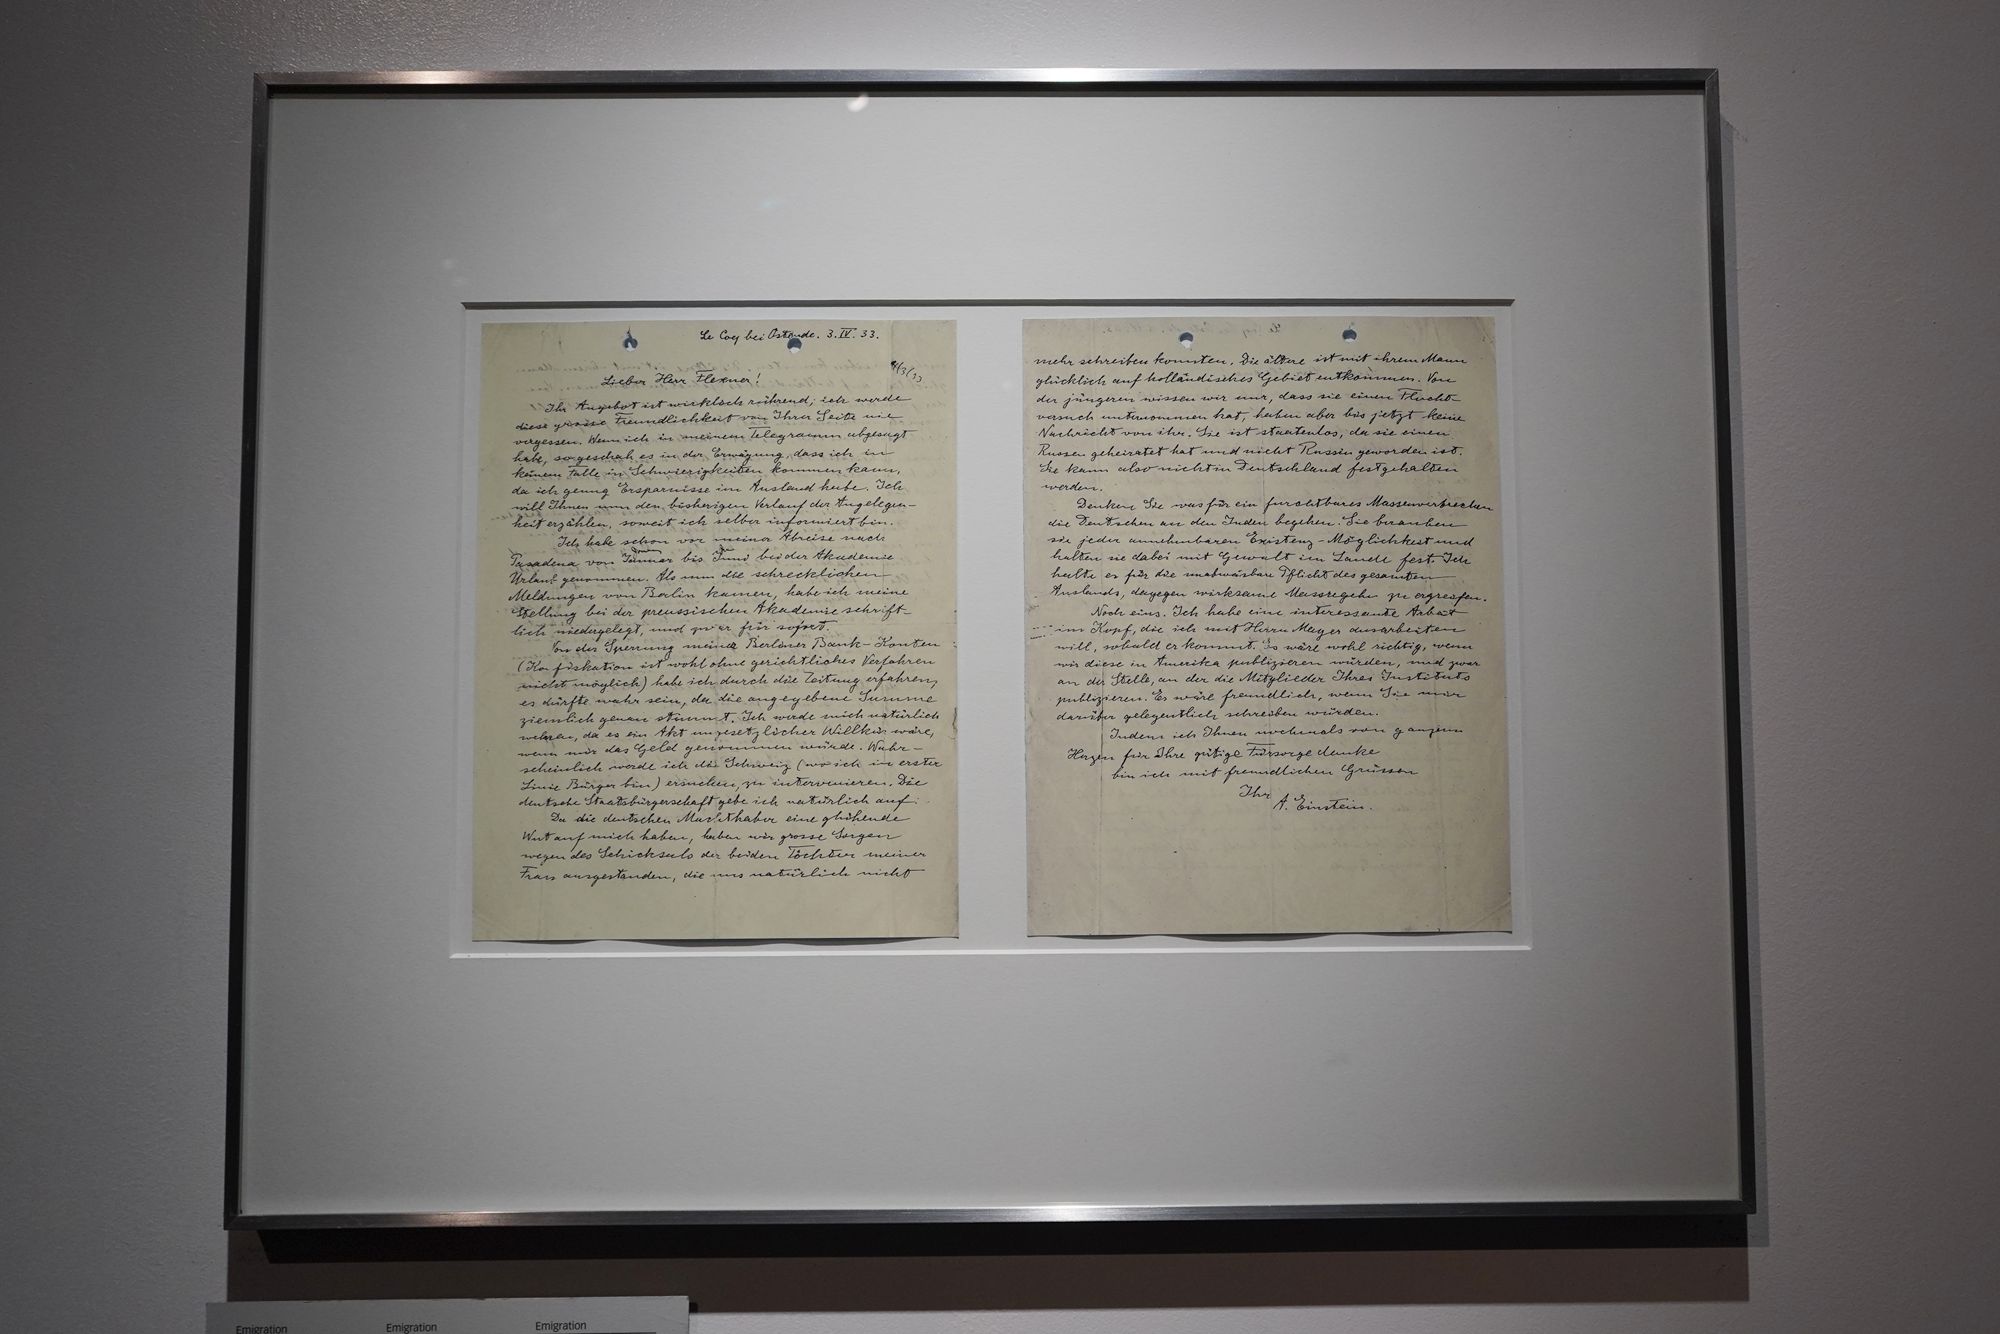 Le Coq bei Ostende. 3. IV. 33.
Lieber Herr Flexner!
Ihr Angebot ist wirklich rührend; ich werde
diese grosse Freundlichkeit von Ihrer Seite nie
vergessen. Wenn ich in meinem Telegramm abgesagt
habe, so geschah es in der Erwägung, dass ich in
keinem Falle in Schwierigkeiten kommen kann,
da ich genug Ersparnisse im Ausland habe. Ich
will Ihnen nun den bisherigen Verlauf der Angelegen-
heit erzählen, soweit ich selber informiert bin.
Ich habe schon vor meiner Abreise nach
Pasadena von Januar bis Juni bei der Akademie
Urlaub genommen. Als nun die schrecklichen
Meldungen von Berlin kamen, habe ich meine
Stellung bei der preussischen Akademie schrift-
lich niedergelegt, und zwar für sofort.
Von der Sperrung meiner Berliner Bank-Konten
(Konfiskation ist wohl ohne gerichtliches Verfahren
nicht möglich) habe ich durch die Zeitung erfahren,
es dürfte wahr sein, da die angegebene Summe
ziemlich genau stimmt. Ich werde mich natürlich
wehren, da es ein Akt ungesetzlicher Willkür wäre,
wenn mir das Geld genommen würde. Wahr-
scheinlich werde ich die Schweiz (wo ich in erster
Linie Bürger bin) ersuchen, zu intervenieren. Die
deutsche Staatsbürgerschaft gebe ich natürlich auf.
Da die deutschen Machthaber eine glühende
Wut auf mich haben, haben wir grosse Sorgen
wegen des Schicksals der beiden Töchter meiner
Frau ausgestanden, die uns natürlich nicht
mehr schreiben konnten. Die ältere ist mit ihrem Mann
glücklich auf holländisches Gebiet entkommen. Von
der jüngeren wissen wir nur, dass sie einen Flucht-
versuch unternommen hat, haben aber bis jetzt keine
Nachricht von ihr. Sie ist staatenlos, da sie einen
Russen geheiratet hat und nicht Russin geworden ist.
Sie kann also nicht in Deutschland festgehalten
werden.
Denken Sie was für ein furchtbares Massenverbrechen
die Deutschen an den Juden begehen. Sie berauben
sie jeder annehmbaren Existenz-Möglichkeit und
halten sie dabei mit Gewalt im Lande fest. Ich
halte es für die unabwäsbare Pflicht des gesamten
Auslands, dagegen wirksame Massregeln zu ergreifen.
Noch eins. Ich habe eine interessante Arbeit
im Kopf, die ich mit Herrn Mayer ausarbeiten
will, sobald er kommt. Es wäre wohl richtig, wenn
wir diese in Amerika publizieren würden, und zwar
an der Stelle, an der die Mitglieder Ihres Instituts
publizieren. Es wäre freundlich, wenn Sie mir
darüber gelegentlich schreiben würden.
Indem ich Ihnen nochmals von ganzem
Herzen für Ihre gütige Fürsorge danke
bin ich mit freundlichen Grüssen
Ihr
A. Einstein.
Emigration
Emigration
Emigration